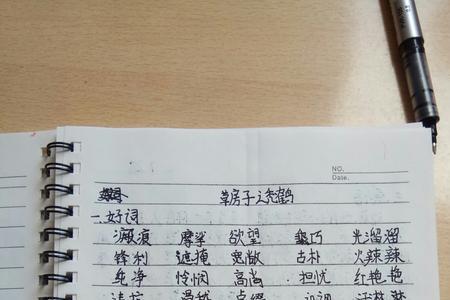 NO.
Date.
草房子之秃鹤
一.好词
摩挲 欲望 光溜溜
锋利 遮掩 宽敞 古朴 火辣辣
纯净 怜悯 高尚 担忧 红艳艳
点缀